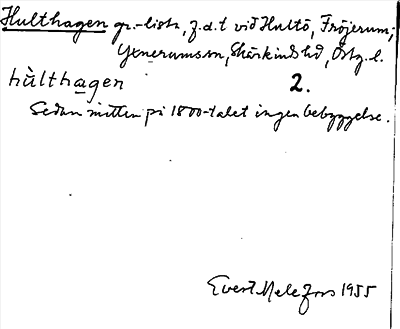 Hulthagen gr.-listr., f.d.t vid Hultö, Fröjerum,
Yxnerums sn, Skärkinds hd, Östg. l.
hùlthagen 2.
Sedan mitten på 1800-talet ingen bebyggelse.
Evert Melefors 1955